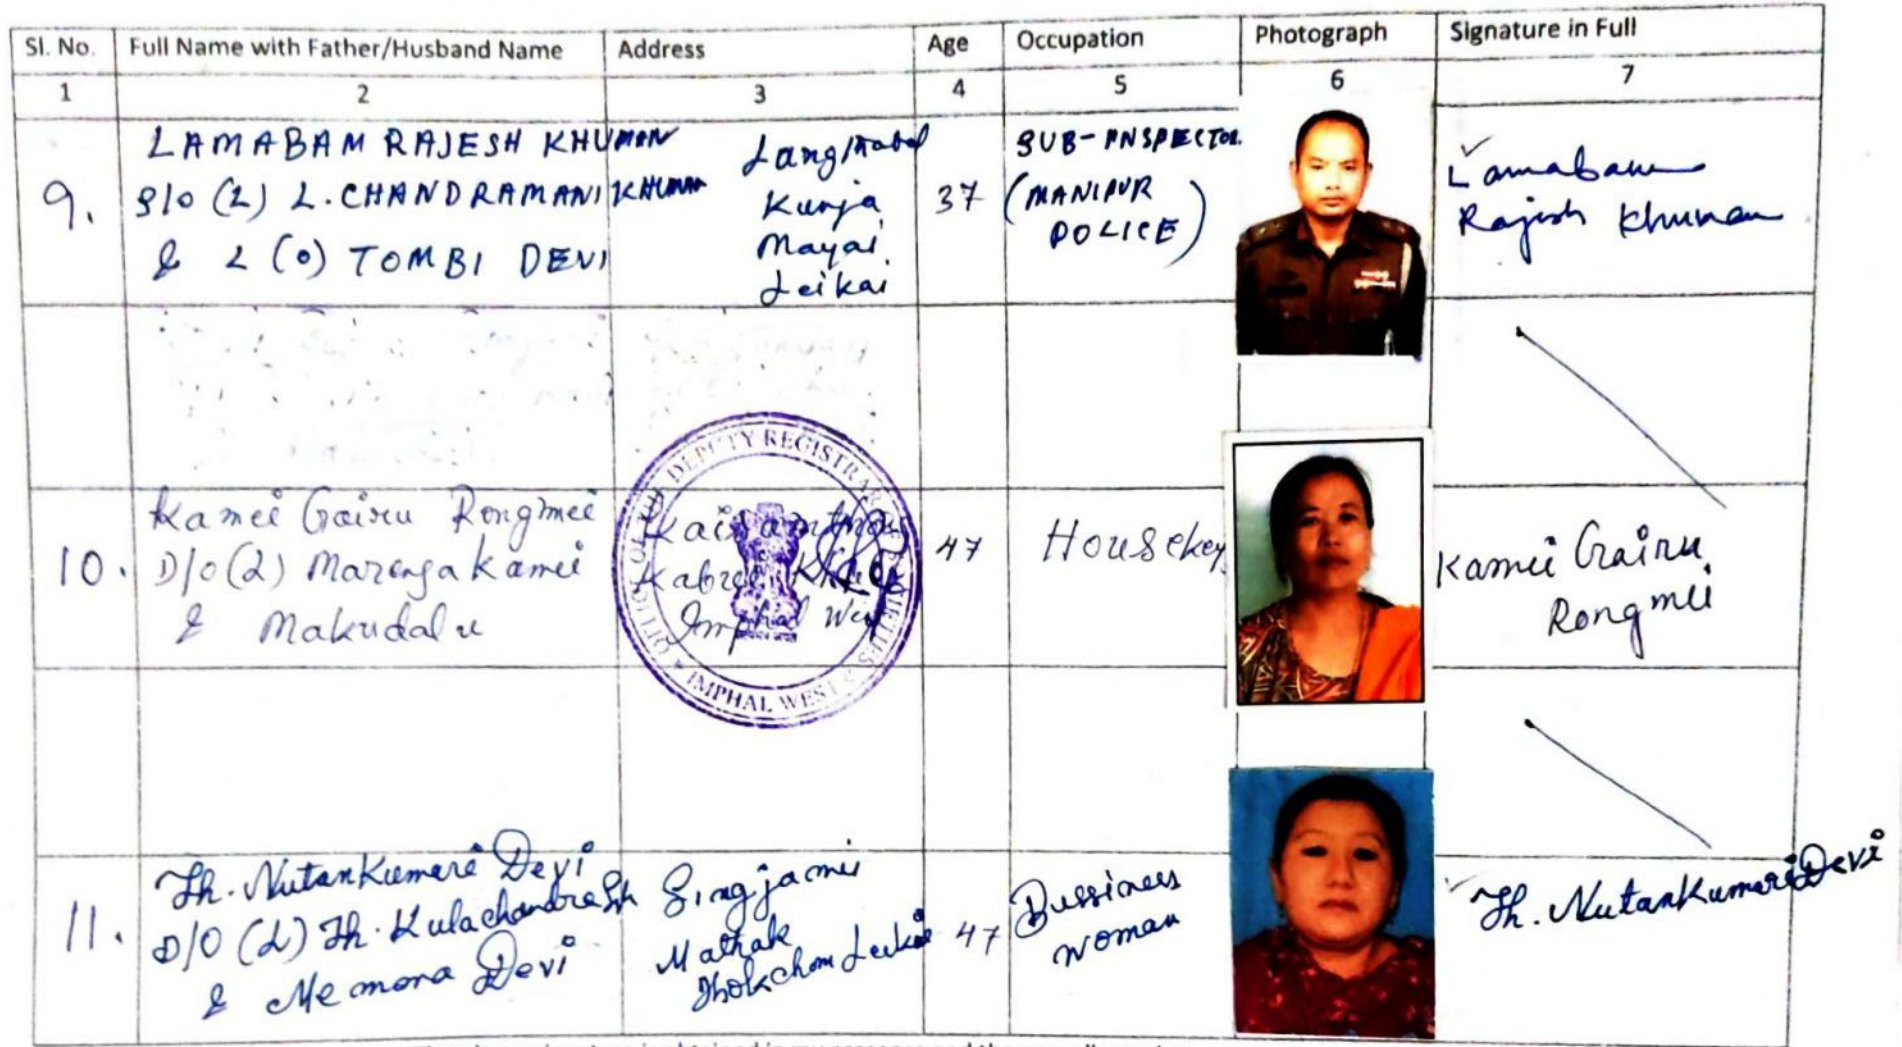 Sl. No. Full Name with Father/Husband Name Address Age Occupation Photograph Signature in Full
1 2 3 4 5 6 7
9.
LAMABAM RAJESH KHUMAN
S/o (L) L. CHANDRAMANI KHUMAN
& L (o) TOMBI DEVI
Langthabal
Kunja
Mayai
Leikai
37
SUB-INSPECTOR.
(MANIPUR
POLICE)
Lamabam
Rajesh Khuman
10.
Kamei Gairu Rongmei
D/o (L) Marenga Kamei
& Makudalu
Kabree
Imphal West
47
Housekey
Kamei Gairu
Rongmei
OFFICE OF THE DEPUTY REGISTRAR SOCIETIES
IMPHAL WEST
11.
Th. Nutankumari Devi
D/O (L) Th. Kulachandra Sh
& Memona Devi
Singjamei
Mathak
Thokchom Leikai
47
Bussiness
woman
Th. Nutankumari Devi